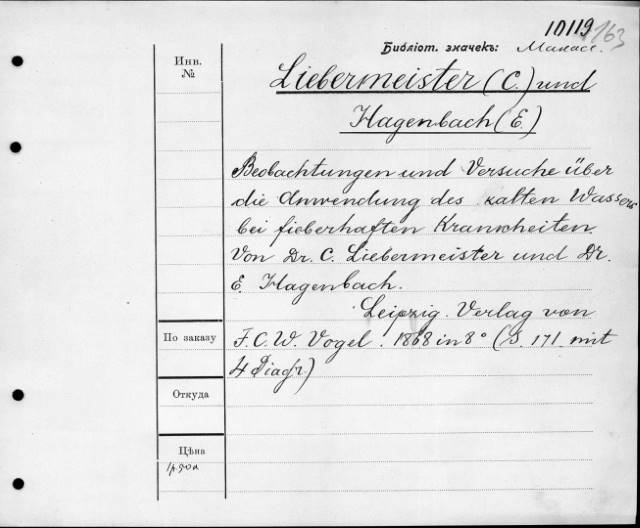 10119
163
Библіот. значекъ: Манасс.
Инв.
№
Liebermeister (C.) und
Hagenbach (E.)
Beobachtungen und Versuche über
die Anwendung des kalten Wassers
bei fieberhaften Krankheiten.
Von Dr. C. Liebermeister und Dr.
E. Hagenbach.
Leipzig. Verlag von
По заказу
F. C. W. Vogel. 1868 in 8° (S. 171 mit
4 Diagr.)
Откуда
Цѣна